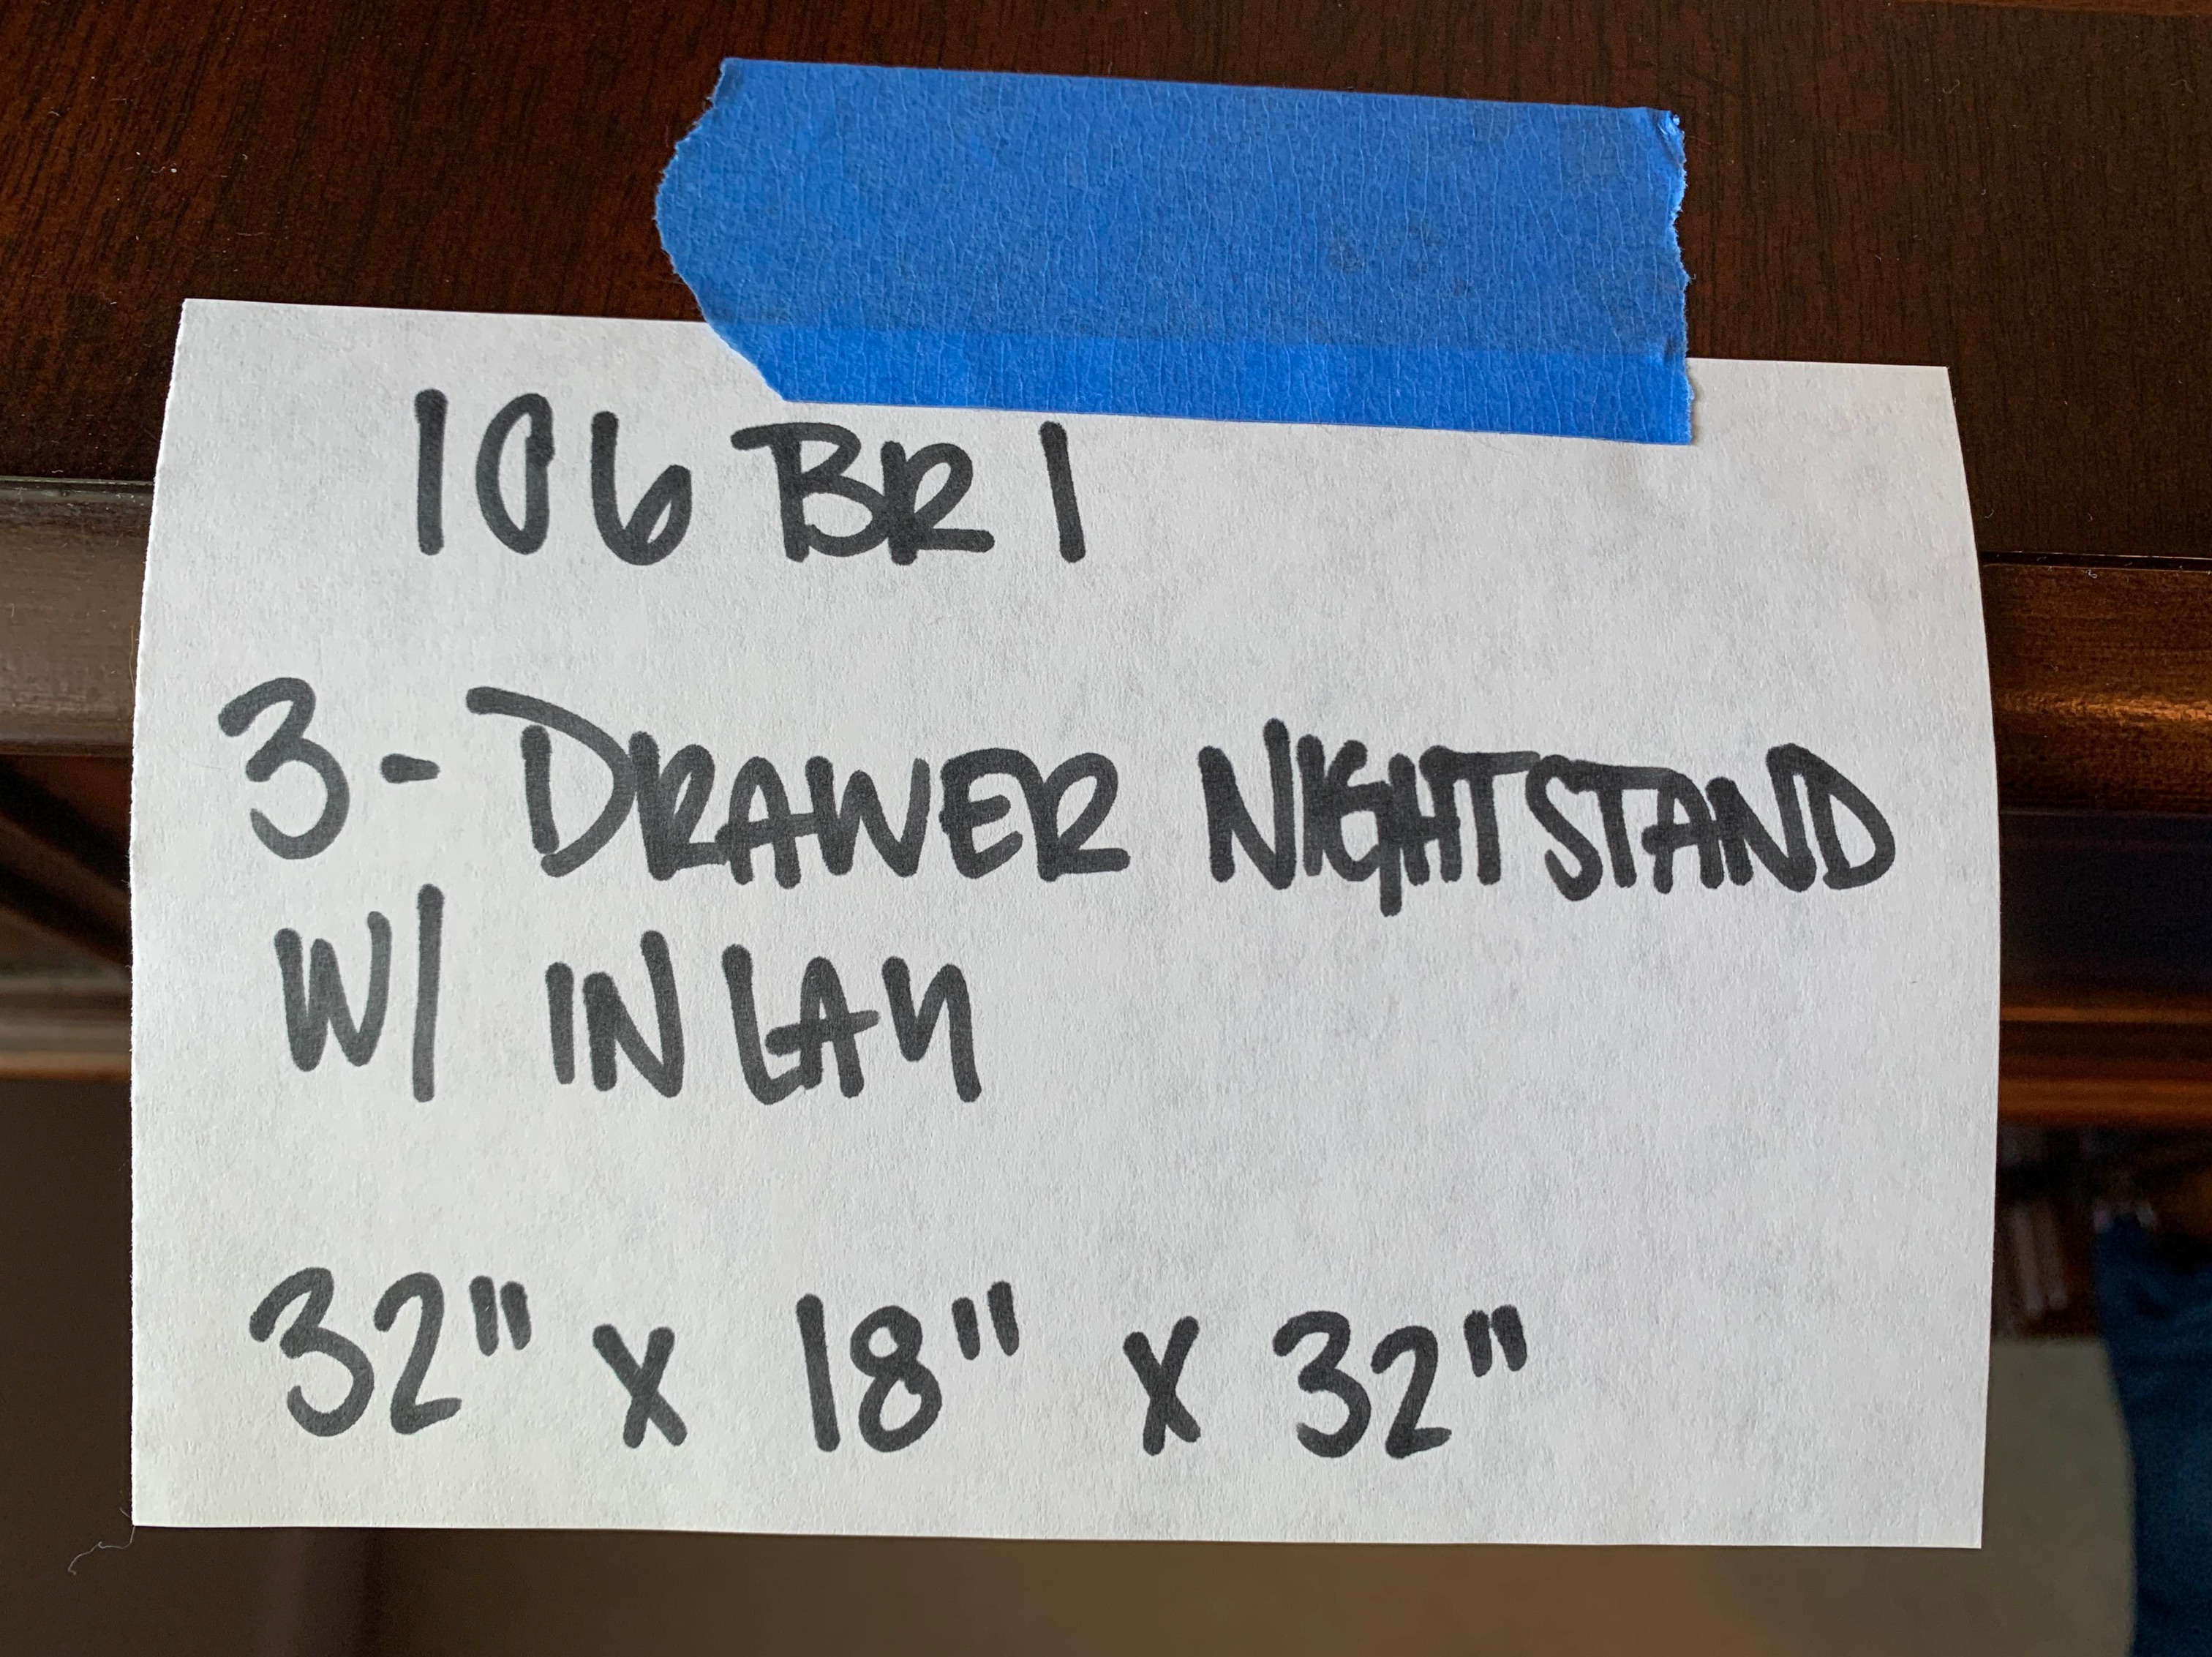 106 BR 1
3-DRAWER NIGHTSTAND
W/ INLAY
32" X 18" X 32"